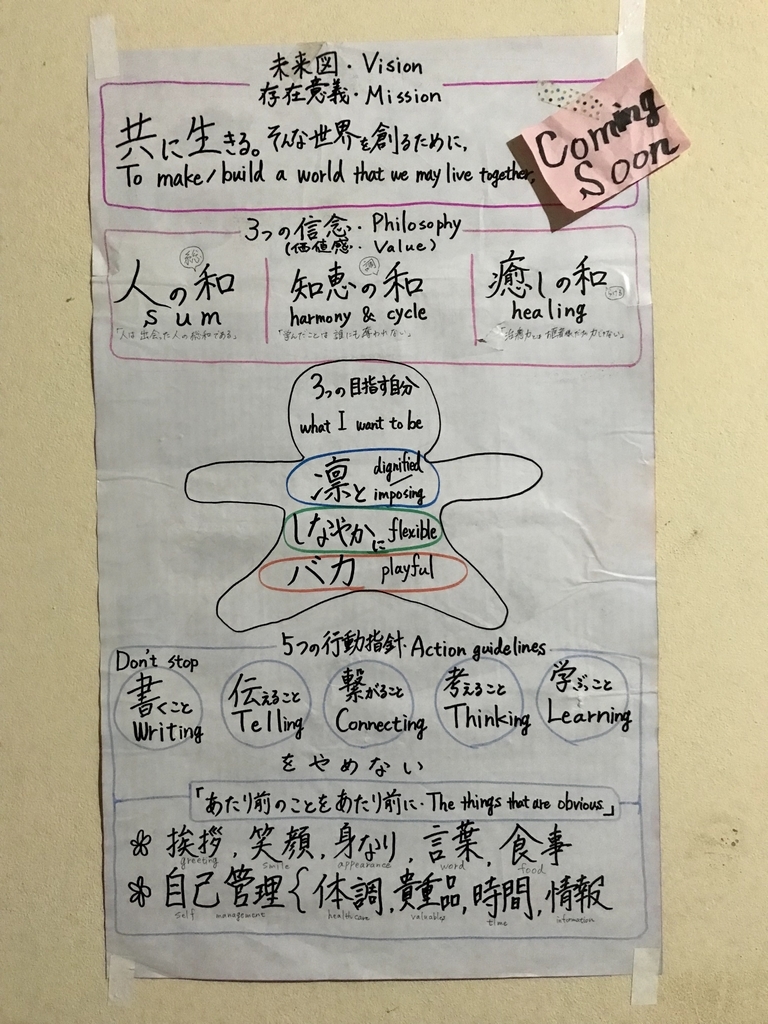 未来図・Vision
存在意義・Mission
Coming
Soon
共に生きる。そんな世界を創るために、
To make/build a world that we may live together.
3つの信念・Philosophy
(価値感・Value)
総
人の和
sum
「人は出会った人の総和である。」
調
知恵の和
harmony & cycle
「学んだことは誰にも奪われない。」
癒しの和
healing
3つの目指す自分
what I want to be
凛と dignified/imposing
しなやかに flexible
バカ playful
5つの行動指針・Action guidelines
Don't stop
書くこと
Writing
伝えること
Telling
繋がること
Connecting
考えること
Thinking
学ぶこと
Learning
をやめない
「あたり前のことをあたり前に・The things that are obvious」
挨拶, 笑顔, 身なり, 言葉, 食事
greeting smile appearance word food
自己管理{体調, 貴重品, 時間, 情報
self management health care valuables time information